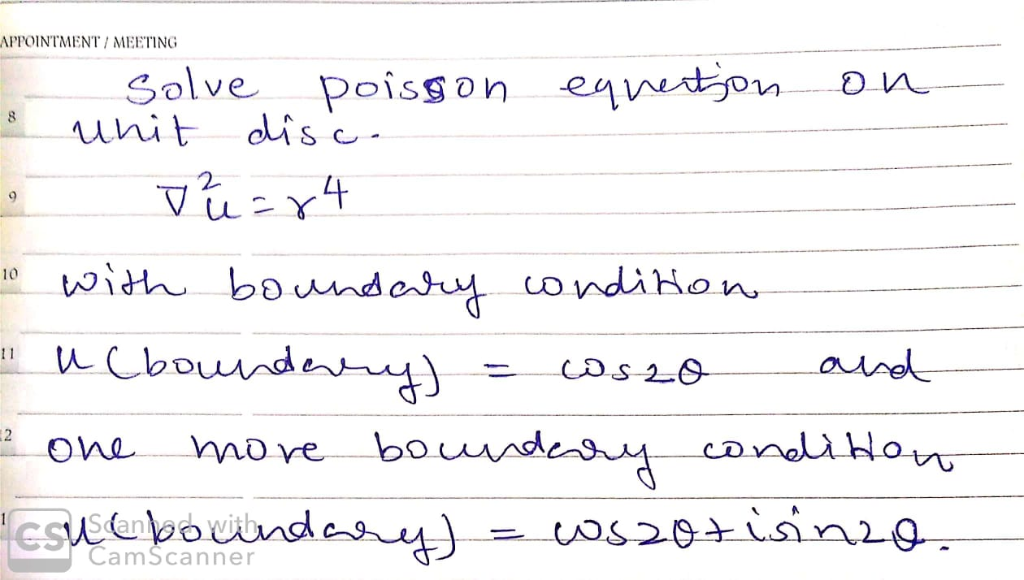 APPOINTMENT / MEETING
Solve poisson equation on
8 unit disc.
9 ∇²u = r⁴
10 with boundary condition
11 u(boundary) = cos2θ and
12 one more boundary condition
1 u(boundary) = cos2θ + isin2θ.
CS Scanned with
CamScanner